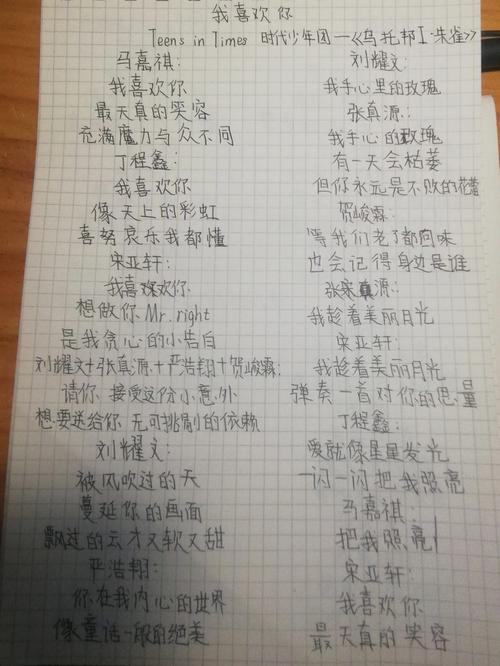 我喜欢你
Teens in Times 时代少年团一《乌托邦I·朱雀》
马嘉祺:
我喜欢你
最天真的笑容
充满魔力与众不同
丁程鑫:
我喜欢你
像天上的彩虹
喜努哀乐我都懂
宋亚轩:
我喜欢你
想做你Mr.right
是我贪心的小告白
刘耀文+张真源+严浩翔+贺峻霖:
请你接受这份小意外
想要送给你无可挑剔的依赖
刘耀文:
被风吹过的天
蔓延你的画面
飘过的云才又软又甜
严浩翔:
你在我内心的世界
像童话一般的绝美
刘耀文:
我手心里的玫瑰
张真源:
我手心的玫瑰
有一天会枯萎
但你永远是不败的花蕾
贺峻霖:
等我们老了都回味
也会记得身边是谁
张真源:
我趁着美丽月光
宋亚轩:
我趁着美丽月光
弹奏一首对你的思量
丁程鑫:
爱就像星星发光
一闪一闪把我照亮
马嘉祺:
把我照亮
宋亚轩:
我喜欢你
最天真的笑容